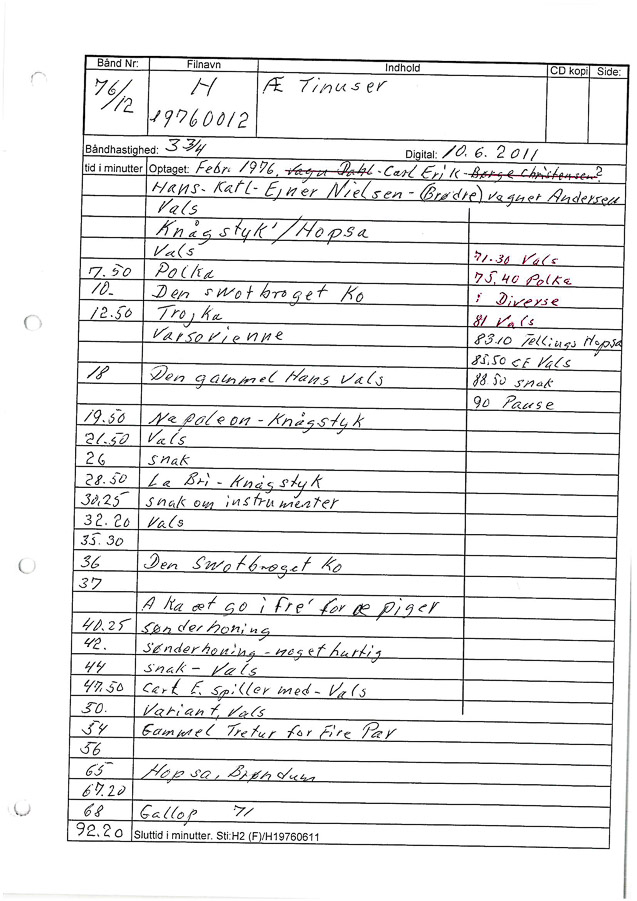 Bånd Nr: Filnavn Indhold CD kopi Side:
76/12 H Æ Tinuser
19760012
Båndhastighed: 3 3/4 Digital: 10.6.2011
tid i minutter Optaget: Febr. 1976, Vagn Dahl - Carl Erik - Børge Christensen?
Hans - Karl - Ejner Nielsen - (Brødre) Vagner Andersen
Vals
Knågstyk'/Hopsa
Vals 71.30 Vals
7.50 Polka 75,40 Polka
10. Den swotbroget Ko i Diverse
12.50 Trojka 81 Vals
Varsovienne 83.10 Tellings Hopsa
85.50 CE Vals
18 Den gammel Hans Vals 88.50 snak
90 Pause
19.50 Napoleon - Knågstyk
21.50 Vals
26 snak
28.50 La Bri - Knågstyk
30,25 snak om instrumenter
32.20 Vals
35.30
36 Den swotbroget Ko
37
A Ka æt go i fre' for æ piger
40.25 Sønderhoning
42. Sønderhoning - noget hurtig
44 snak - Vals
47.50 Carl E. spiller med - Vals
50. Variant, Vals
54 Gammel Tretur for Fire Par
56
65 Hopsa, Brøndum
67.20
68 Gallop 71
92.20 Sluttid i minutter. Sti:H2 (F)/H19760611